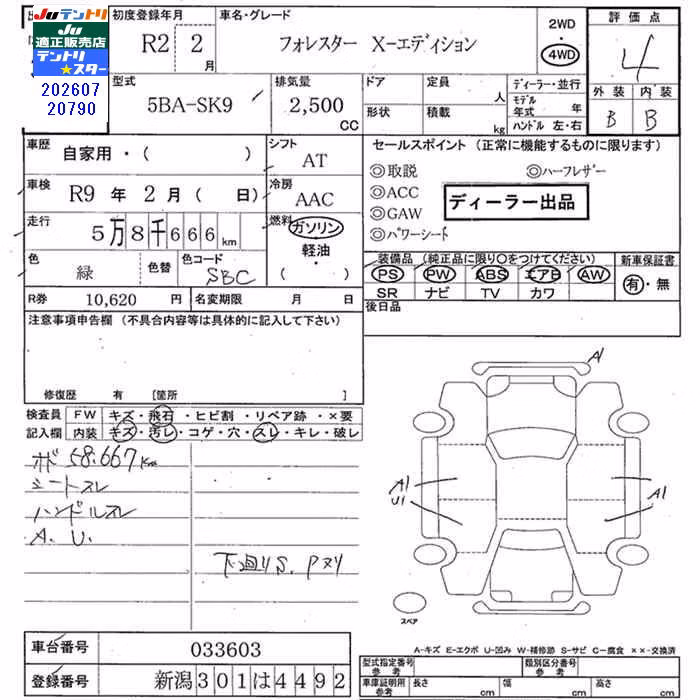 Juテントリ
適正販売店
テントリ
★スター
202607
20790
初度登録年月
R2 2 月
車名・グレード
フォレスター X-エディション
2WD
・
4WD
評価点
4
外装 内装
B B
型式
5BA-SK9
排気量
2,500 CC
ドア
定員 人
形状
積載 kg
ディーラー・並行
モデル年式 年
ハンドル 左・右
車歴
自家用・( )
シフト
AT
車検
R9 年 2 月 ( 日)
冷房
AAC
走行
5万8千666km
燃料
ガソリン
軽油
・
( )
色
緑
色替
色コード
SBC
R券 10,620 円
名変期限 月 日
セールスポイント (正常に機能するものに限ります)
◎取説 ◎ハーフレザー
◎ACC
◎GAW
◎パワーシート
ディーラー出品
装備品 (純正品に限り○をつけてください)
PS PW ABS エアB AW
SR ナビ TV カワ
新車保証書
有・無
後日品
注意事項申告欄 (不具合内容等は具体的に記入して下さい)
修復歴 有 [箇所 ]
検査員
記入欄
FW キズ・飛石・ヒビ割・リペア跡・×要
内装 キズ・汚レ・コゲ・穴・スレ・キレ・破レ
ボ 58.667Km
シートスレ
ハンドルスレ
A. U.
下回りS. Pヌリ
A1
A1
U1
A1
スペア
A-キズ E-エクボ U-凹み W-補修跡 S-サビ C-腐食 ××-交換済
車台番号 033603
登録番号 新潟301は4492
型式指定番号
参考
類別区分番号
参考
車庫証明用
参考
長さ cm
幅 cm
高さ cm